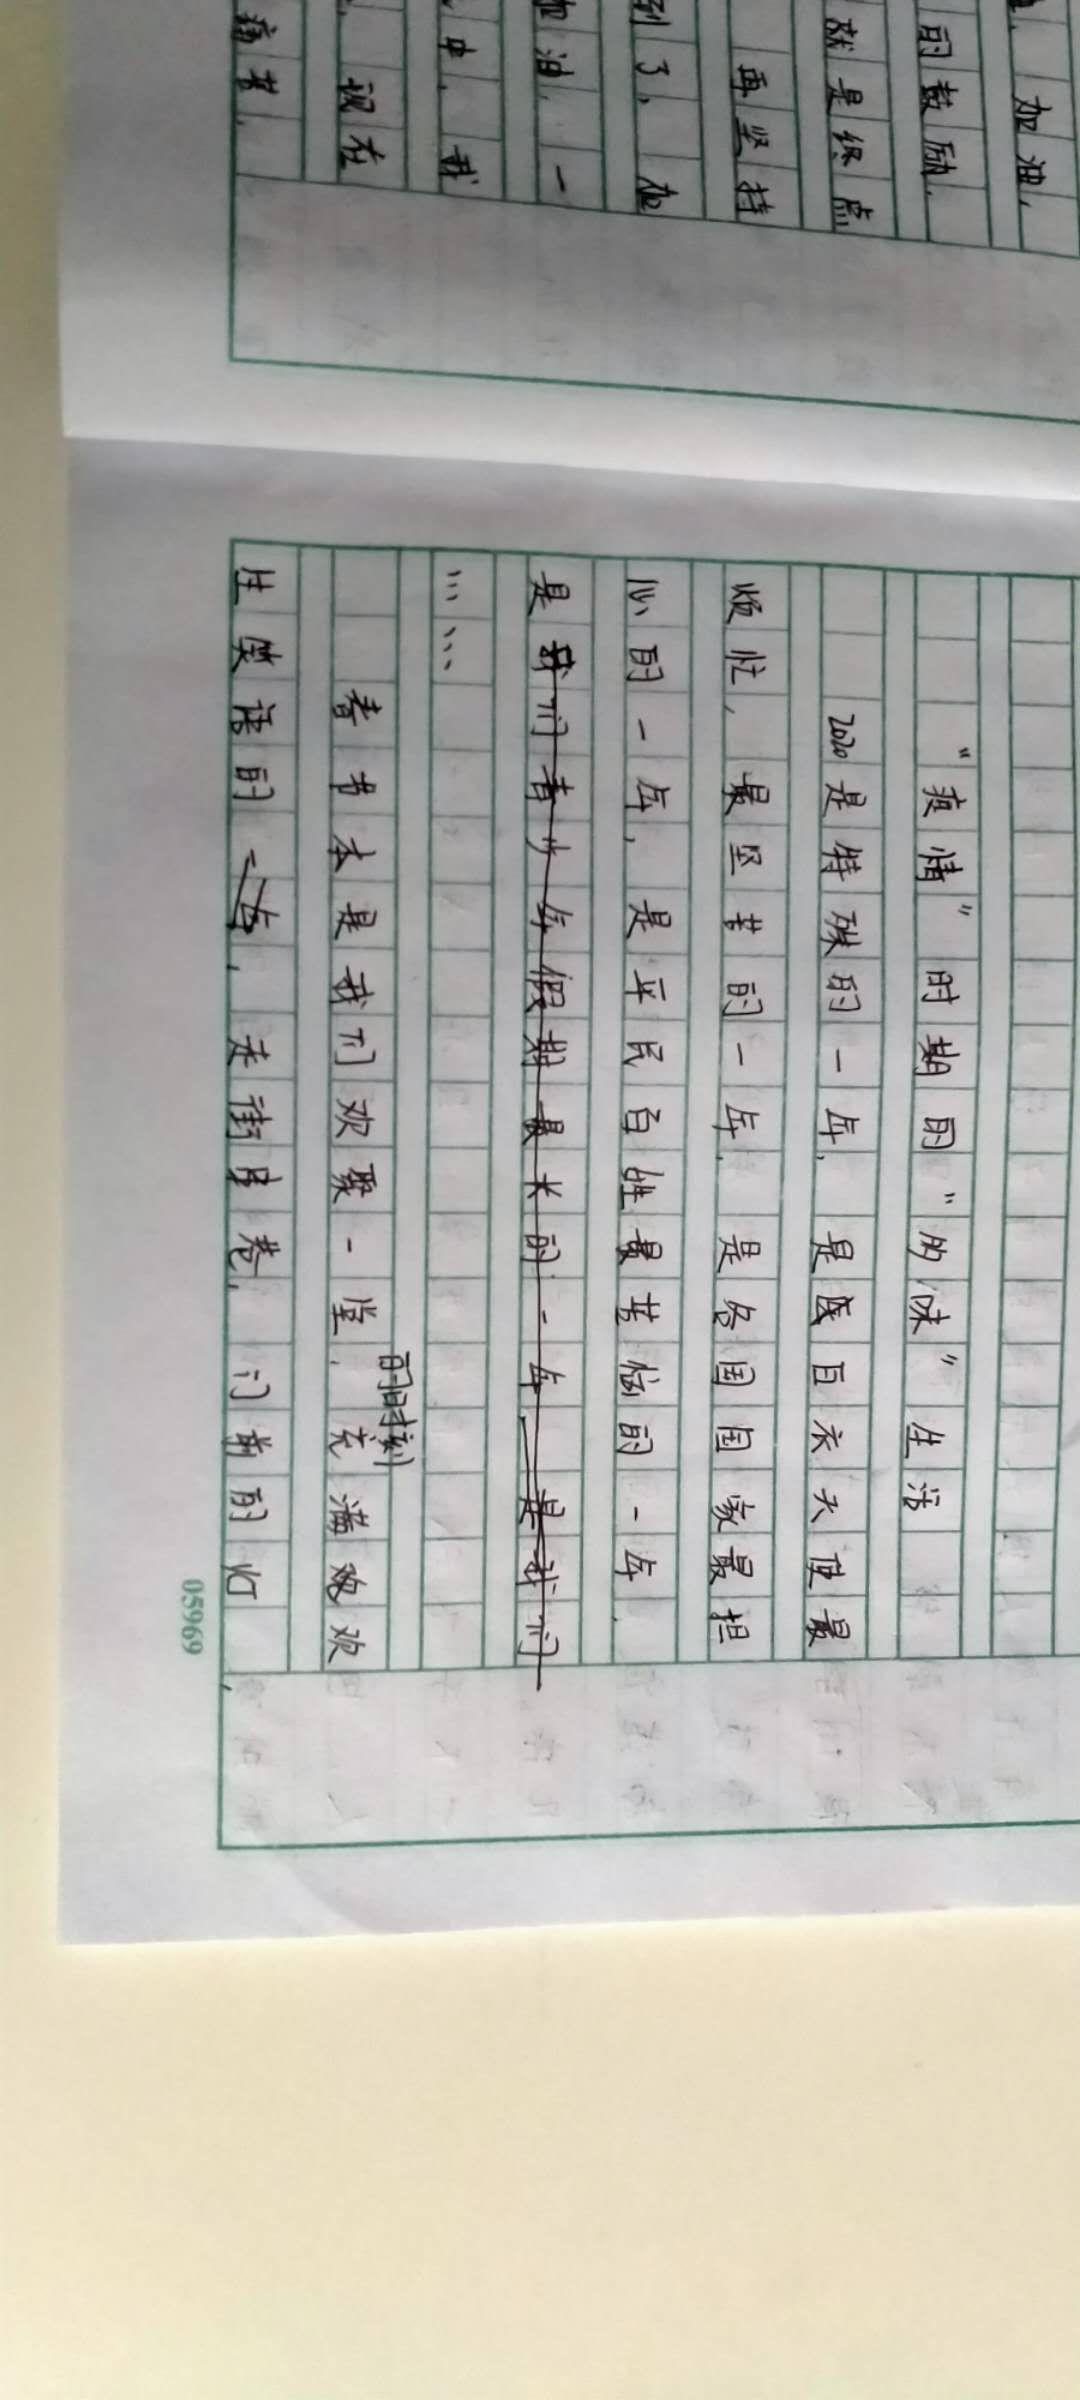 加油，
的鼓励，
就是终点
再坚持
到了，加
加油，一
中，我
，现在
痛苦，
“疫情”时期的“多味”生活
2020是特殊的一年，是医白衣天使最
烦忙，最坚苦的一年，是各国国家最担
心的一年，是平民百姓最苦恼的一年，
是我们青少年假期最长的一年——是我们
……
的时刻
春节本是我们欢聚一堂，充满欢
笑语的一年，走街串巷，门前的灯
05969